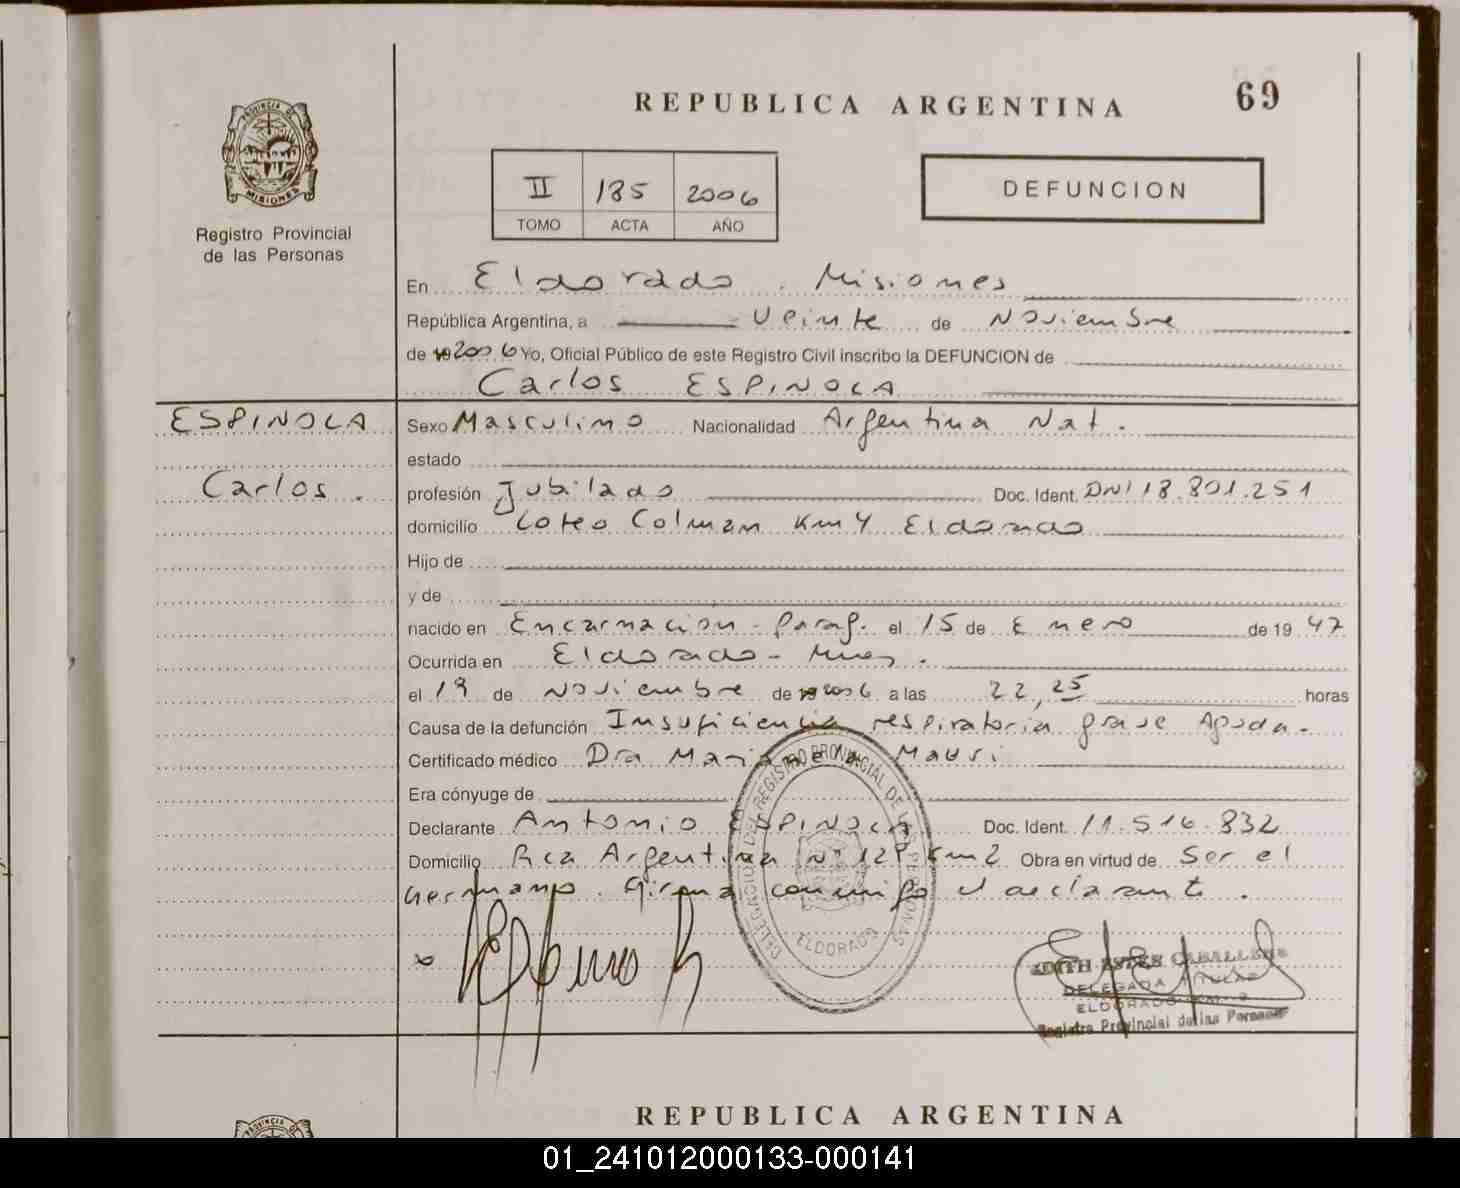 REPUBLICA ARGENTINA
69
PROVINCIA DE
MISIONES
Registro Provincial
de las Personas
II 185 2006
TOMO ACTA AÑO
DEFUNCION
En Eldorado . Misiones
República Argentina, a Veinte de Noviembre
de 19 2006 Yo, Oficial Público de este Registro Civil inscribo la DEFUNCION de
Carlos ESPINOLA
ESPINOLA
Carlos .
Sexo Masculino Nacionalidad Argentina Nat.
estado
profesión Jubilado Doc. Ident. DNI 18.801.251
domicilio Loteo Colman Km 4 Eldorado
Hijo de
y de
nacido en Encarnacion - Parag. el 15 de Enero de 19 47
Ocurrida en Eldorado - Mnes .
el 19 de Noviembre de 19 2006 a las 22,25 horas
Causa de la defunción Insuficiencia respiratoria grave Aguda.
Certificado médico Dra Marianela Mauri
Era cónyuge de
Declarante Antonio ESPINOLA Doc. Ident. 11.516.832
Domicilio Rca Argentina Nº 129 Km 2 Obra en virtud de Ser el
hermano. Firma conmigo el declarante .
DELEGACION DEL REGISTRO PROVINCIAL DE LAS PERSONAS
ELDORADO
EDITH ESTER CABALLERO
DELEGADA TITULAR
ELDORADO KM. 2
Registro Provincial de las Personas
REPUBLICA ARGENTINA
PROVINCIA DE
01_241012000133-000141